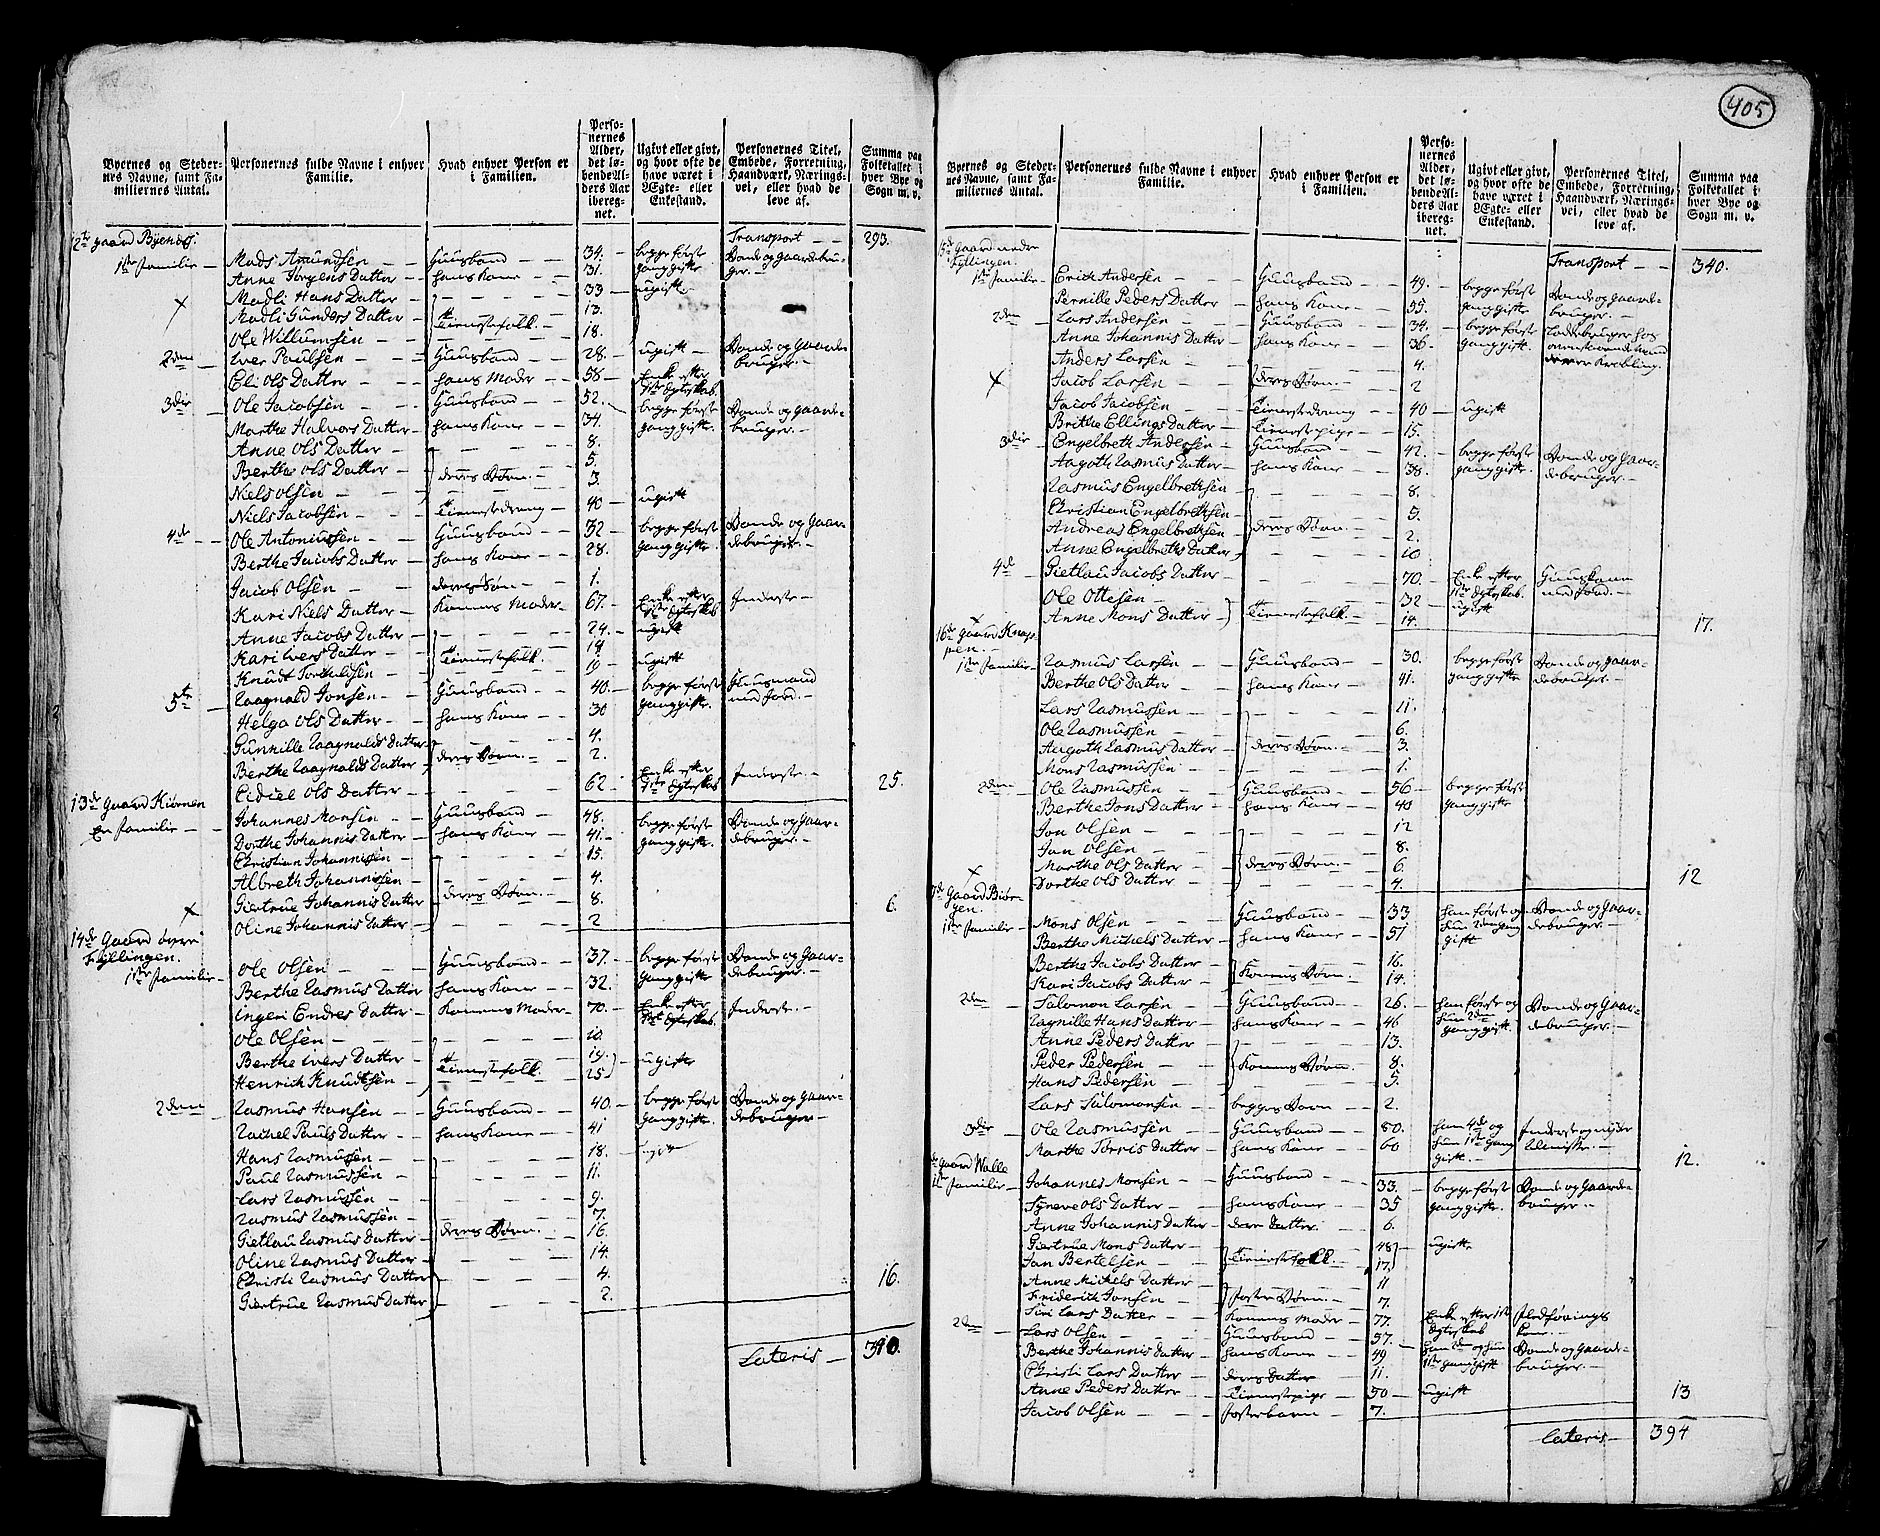 405
Byernes og Stedernes Navne, samt Familiernes Antal.
Personernes fulde Navne i enhver Familie.
Hvad enhver Person er i Familien.
Personernes Alder, det løbende Alders Aar iberegnet.
Ugivt eller givt, og hvor ofte de have været i Ægte- eller Enkestand.
Personernes Titel, Embede, Forretning, Haandværk, Næringsvei, eller hvad de leve af.
Summa paa Folketallet i hver Bye og Sogn m. v.
Transport - - 293.
12te gaard
1ste familie - Mads Amundsen - Huusbond - 34. begge første Bonde og gaardebru-
Anne Jørgens Datter - hans Kone - 31. gang gifte ger. -
Madli Hans Datter - 33 - ugift -
Madli Gunders Datter - Tienestefolk. - 13.
Ole Willumsen - 18.
2den - Iver Paulsen - Huusbond - 28 - ugift - Bonde og Gaarde
Eli Ols Datter - hans Moder - 58 - Enke efter 1ste Egteskab bruger. -
3die - Ole Jacobsen - Huusbond - 52. begge første Bonde og gaarde-
Marthe Halvors Datter - hans Kone - 34. gang gifte. bruger. -
Anne Ols Datter - 8.
Berthe Ols Datter - deres Børn. - 5.
Niels Olsen - 3.
Niels Jacobsen - Tienestedreng - 40 - ugift
4de - Ole Antoniussen - Huusbond - 32 - begge først Bonde og Gaar-
Berthe Jacobs Datter - hans Kone - 28. gang gifte. debruger. -
Jacob Olsen - deres Søn - 1.
Kari Niels Datter - Konens Moder - 67. - Enke efter 1ste Egteskab Inderste -
Anne Jacobs Datter - 24. - ugift
Kari Ivers Datter - Tienestefolk. 14
Knudt Torkildsen - 19 - ugift
5te - Raagnald Jonsen - Huusbond - 40. - begge første Huusmand
Helga Ols Datter - hans Kone - 30 gang gifte. med Jord. -
Gunnille Raagnalds Datter - 4.
Berthe Raagnalds Datter - deres Børn. - 2.
Eidiel Ols Datter - 62 - Enke efter 1ste Egteskab Inderste - 25.
13de Gaard Kiørnen
En familie - Johannes Monsen - Huusbond - 48. begge første Bonde og Gaar-
Dorthe Johannis Datter - hans Kone - 41. - gang gifte. debruger. -
Christian Johannissen - 15.
Albreth Johannissen - 4.
Giertrue Johannis Datter - deres Børn. - 8.
Oline Johannis Datter - 2 6.
14de Gaard øvre Fyllingen.
1ste familie - Ole Olsen - Huusbond - 37. - begge første Bonde og Gaar-
Berthe Rasmus Datter - hans Kone - 32. gang gifte debruger. -
Ingeri Endres Datter - Konens Moder - 70. - Enke efter 1ste Egteskab. Inderste. -
Ole Olsen - 10.
Berthe Ivers Datter - Tienestefolk. 19. ugifte
Henrich Knudtsen - 25
2den - Rasmus Hansen - Huusbond - 40. - begge først Bonde og Gaar-
Rachel Pauls Datter - hans Kone - 41 gang gifte. debruger -
Hans Rasmussen - 18. - ugift
Paul Rasmussen - 11.
Lars Rasmussen - 9.
Rasmus Rasmussen - 7.
Gietlau Rasmus Datter - deres Børn. - 16.
Oline Rasmus Datter - 14.
Christi Rasmus Datter - 4.
Giertrue Rasmus Datter - 2. 16.
Lateris - 340.
Byernes og Stedernes Navne, samt Familiernes Antal.
Personernes fulde Navne i enhver Familie.
Hvad enhver Person er i Familien.
Personernes Alder, det løbende Alders Aar iberegnet.
Ugivt eller givt, og hvor ofte de have været i Ægte- eller Enkestand.
Personernes Titel, Embede, Forretning, Haandværk, Næringsvei, eller hvad de leve af.
Summa paa Folketallet i hver Bye og Sogn m. v.
Transport - - 340.
15de Gaard nedre Fyllingen.
1ste familie - Erich Andersen - Huusbond - 49. - begge først Bonde og Gaarde-
Pernille Peders Datter - hans Kone - 55. gang gifte bruger. -
2den - Lars Andersen - Huusbond - 34. - begge først
Anne Johannis Datter - hans Kone - 36 - gang gift.
Anders Larsen - 4.
Jacob Larsen - deres Børn. - 2
Jacob Jacobsen - Tienestedreng - 40 - ugift
Brithe Ellings Datter - Tienestepige - 15.
3die - Engelbreth Andersen - Huusbond - 42. - begge først Bonde og Gaar-
Aagoth Rasmus Datter - hans Kone - 38. gang gifte debruger. -
Rasmus Engelbrethsen - 8.
Christian Engelbrethsen - 5.
Andreas Engelbrethsen - deres Børn. - 2.
Anne Engelbreths Datter - 10
4de - Gietlau Jacobs Datter - 70. - Enke efter 1ste Egteskab. Huuskone med Jord. -
Ole Ottesen - 32 - ugift
Anne Mons Datter - Tienestefolk. - 14. 17.
16de Gaard Knappen. -
1ste familie - Rasmus Larsen - Huusbond - 30. begge først Bonde og Gaar-
Berthe Ols Datter - hans Kone - 41. gang gifte debruger. -
Lars Rasmussen - 11.
Ole Rasmussen - 6.
Aagoth Rasmus Datter - deres Børn. - 3.
Mons Rasmussen - 1.
2den - Ole Rasmussen - Huusbond - 56 - begge først
Berthe Jons Datter - hans Kone - 40 gang gifte.
Jon Olsen - 12
Jan Olsen - 8.
Marthe Ols Datter - deres Børn. - 6.
Dorthe Ols Datter - 4. 12
Gaard
1ste familie - Mons Olsen - Huusbond - 33 han første og Bonde og Gaar-
Berthe Michels Datter - hans Kone - 51 hun 2den gang gift debruger. -
Berthe Jacobs Datter - 16.
Kari Jacobs Datter - Konens Børn. - 14.
2den - Salomon Larsen - Huusbond - 26. - han først og Bonde og Gaar-
Ragnille Hans Datter - hans Kone - 46 hun 2den gang gift. debruger. -
Anne Peders Datter - 13.
Peder Pedersen - Konens Børn - 8.
Hans Pedersen - 5.
Lars Salomonsen - begges Børn - 2.
3die - Ole Rasmussen - Huusbond - 80. han 4de og Inderste og nyder
Marthe Torris Datter - hans Kone - 60 hun 1ste gang gift. - Almisse. - 12.
Gaard Walle
1ste familie - Johannes Monsen - Huusbond - 33. - begge først Bonde og Gaarde-
Syneve Ols Datter - hans Kone - 35 gang gifte. bruger. -
Anne Johannis Datter - dere Datter. - 6.
Giertrue Mons Datter - 48 - ugifte
Jan Bertelsen - Tienestefolk. - 17.
Anne Mickels Datter - 11
Friderich Jonsen - foster Børn - 7.
Siri Lars Datter - Konens Moder - 77. Enke efter 1ste Egteskab
2den - Lars Olsen - Huusbond - 57. - han 2den og hun Bonde og Gaarde-
Berthe Johannis Datter - hans Kone - 49 1ste gang gift bruger. -
Christi Lars Datter - deres Datter - 11.
Anne Peders Datter - Tienestepige - 50 - ugift 13
Jacob Olsen - fosterbarn - 7.
Lateris - 394